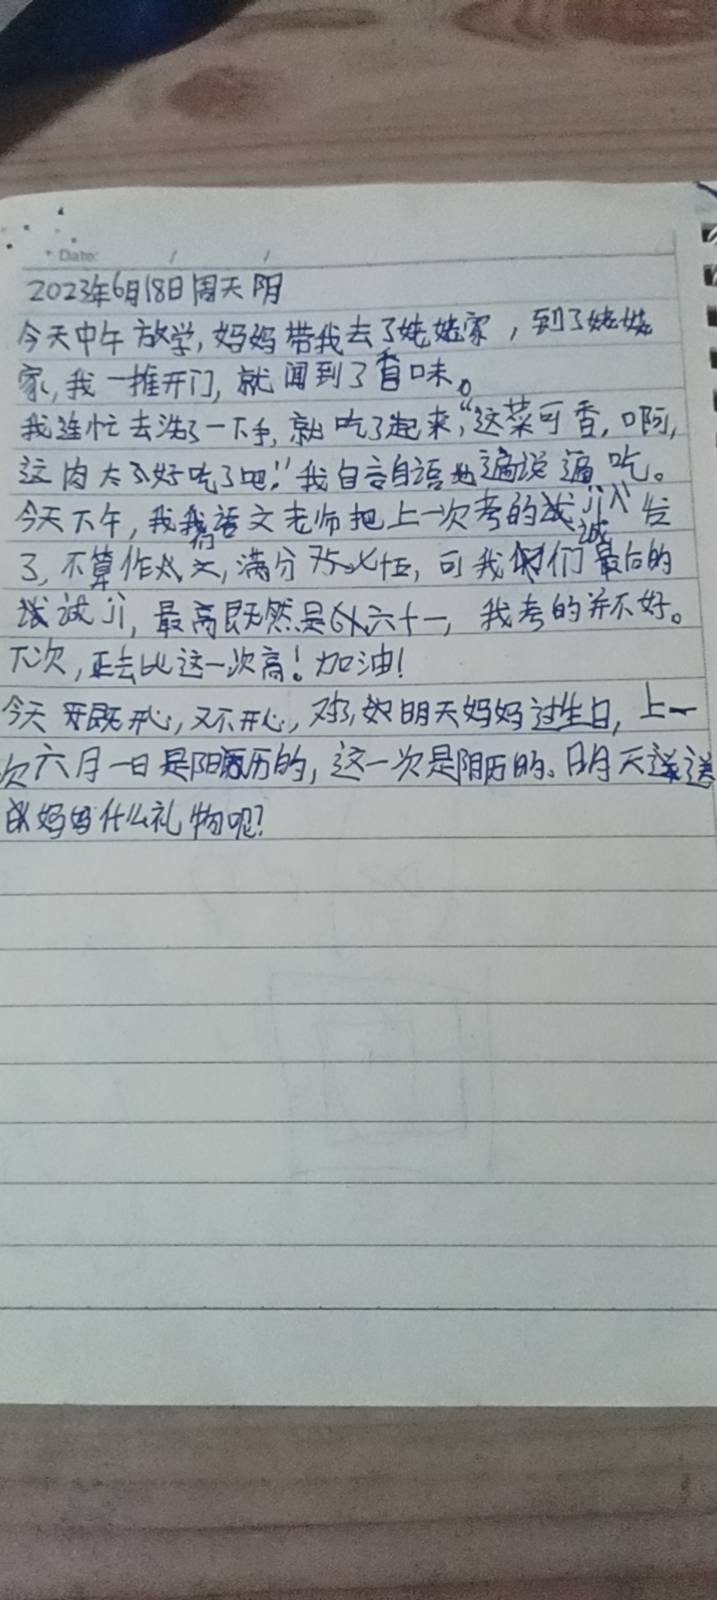 Date: / /
2023年6月18日周天阴
今天中午放学,妈妈带我去了姥姥家,到了姥姥
家,我一推开门,就闻到了香味。
我连忙去洗了一下手,就吃了起来,“这菜可香,啊,
这肉太好吃了吧!”我自言自语地遍说遍吃。
今天下午,我们语文老师把上一次考的试卷发
了,不算作文,满分七十五,可我们最后的
试,最高既然是六十一,我考的并不好。
下次,正去比这一次高!加油!
今天既开心,又不开心,对了,明天妈妈过生日,上一
次六月一日是阳历的,这一次是阴历的。明天送
妈妈什么礼物呢?